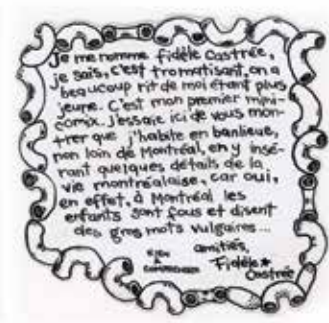 je me nomme fidèle Castrée,
je sais, c'est tromatisant, on a
beaucoup rit de moi étant plus
jeune. C'est mon premier mini-
comix. J'essaie ici de vous mon-
trer que j'habite en banlieue,
non loin de Montréal, en y insé-
rant quelques détails de la
vie montréalaise, car oui,
en effet, à Montréal les
enfants sont fous et disent
des gros mots vulgaires...
amitiés,
Fidèle
Castrée